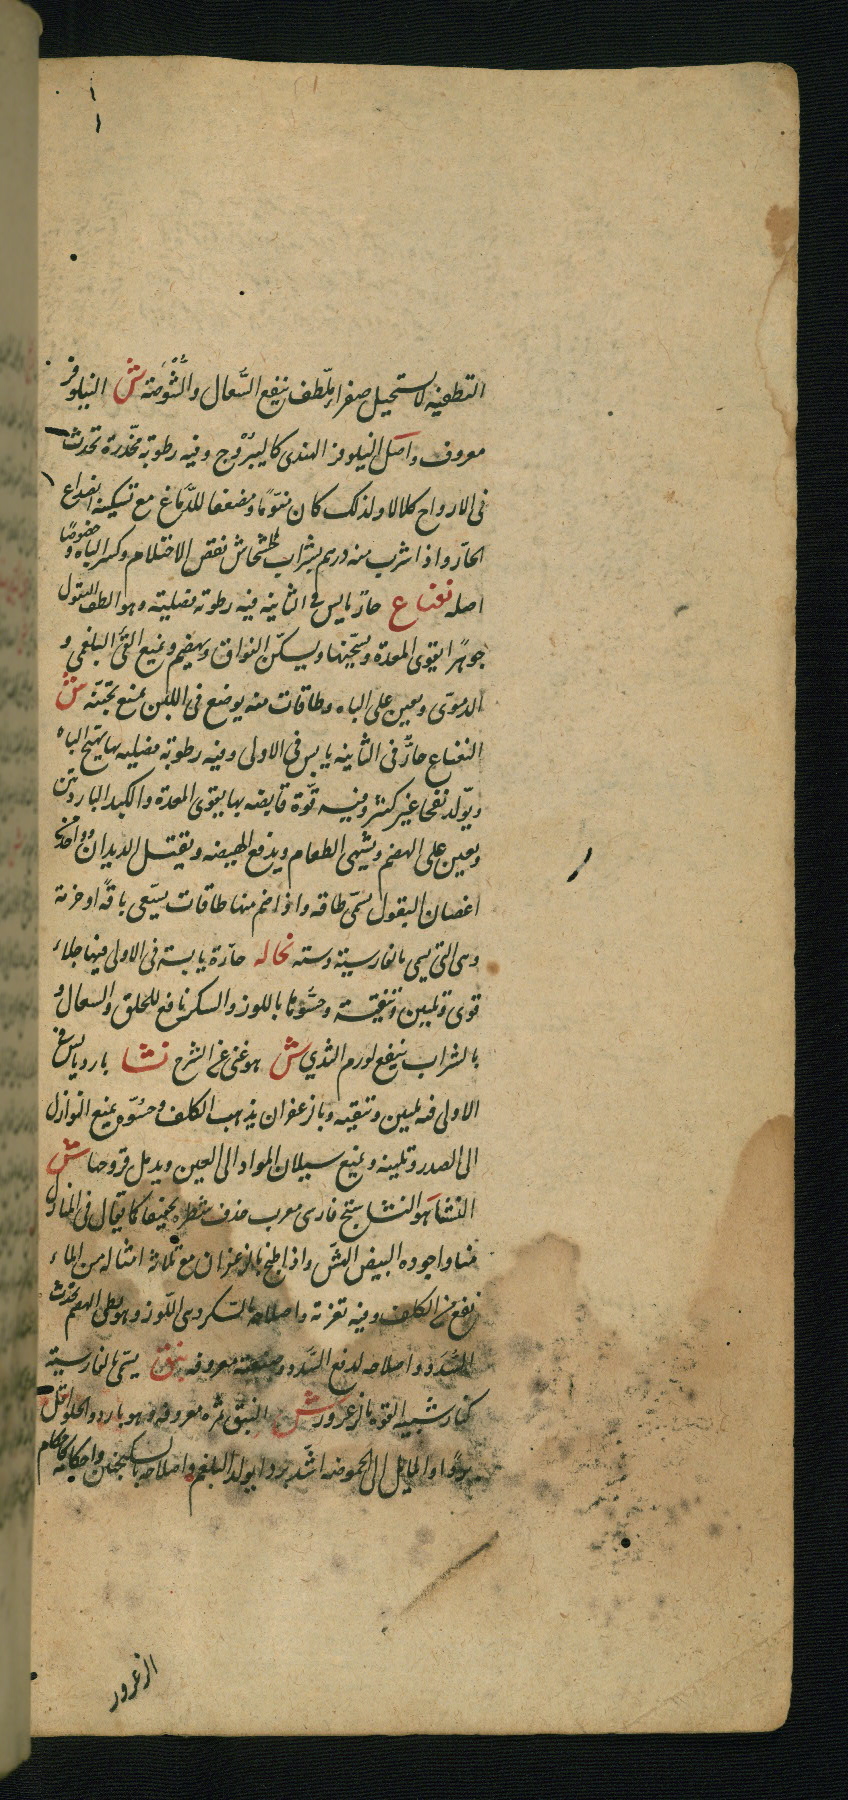 التطفية لا يستحيل صفراء يلطف ينفع السعال والشوصة ش النيلوفر
معروف واصل النيلوفر الهندى كاليبروح وفيه رطوبة مخدرة تحدث
فى الارواح كلالا ولذلك كان منوّما ومضعفا للدماغ مع تسكينه الصداع
الحار واذا شرب منه درهم بشراب الخشخاش نقص الاحتلام وكسر الباه وخصوصًا
اصله نعناع حار يابس فى الثانية فيه رطوبة فضلية وهو الطف البقول
جوهرًا يقوى المعدة ويسخنها ويسكن الفواق ويهضم ويمنع القئ البلغمى و
الدموى ويعين على الباه وطاقات منه يوضع فى اللبن يمنع تجبنه ش
النعناع حارّ فى الثانية يابس فى الاولى وفيه رطوبة فضلية بها يهيج الباه
ويولد نفخا غير كثير وفيه قوّة قابضة بها يقوى المعدة والكبد الباردتين
ويعين على الهضم ويشهى الطعام ويدفع الهيضة ويقتل الديدان وواحد من
اغصان البقول يسمّى طاقة واذا ضم منها طاقات يسمّى باقةً او حزمة
وهى التى يسمى بالفارسية دسته نخاله حارّة يابسة فى الاولى فيها جلاء
قوى وتليين وتنقية وحسوّها باللوز والسكر نافع للحلق والسعال و
بالشراب ينفع لورم الثدي ش هو غنى عن الشرح نشا بارد يابس فى
الاولى فيه تليين وتنقية وبالزعفران يذهب الكلف وحسوّه يمنع النوازل
الى الصدر وتليينه ويمنع سيلان المواد الى العين ويدمل قروحها ش
النشا هو النشاستج فارسى معرب حذف شطره تخفيفا كما يقال فى المنازل
منا واجوده البيض الهشّ واذا طبخ بالزعفران مع ثلاثة امثاله من الماء
نفع من الكلف وفيه تغرية واصلاحه بالسكر ودهن اللّوز وهو بطئ الهضم يحدث
السّدد واصلاحه لدفع السّدد ومنفعته معروفة نبق يسمّى بالفارسية
كنار شبيه القوة بالزعرور ش النبق ثمره معروفة وهو بارد والحلو اقل
بردًا والمايل الى الحموضة اشدّ بردا يولد البلغم واصلاحه بالسكنجبين واحكامه كاحكام
الزعرور